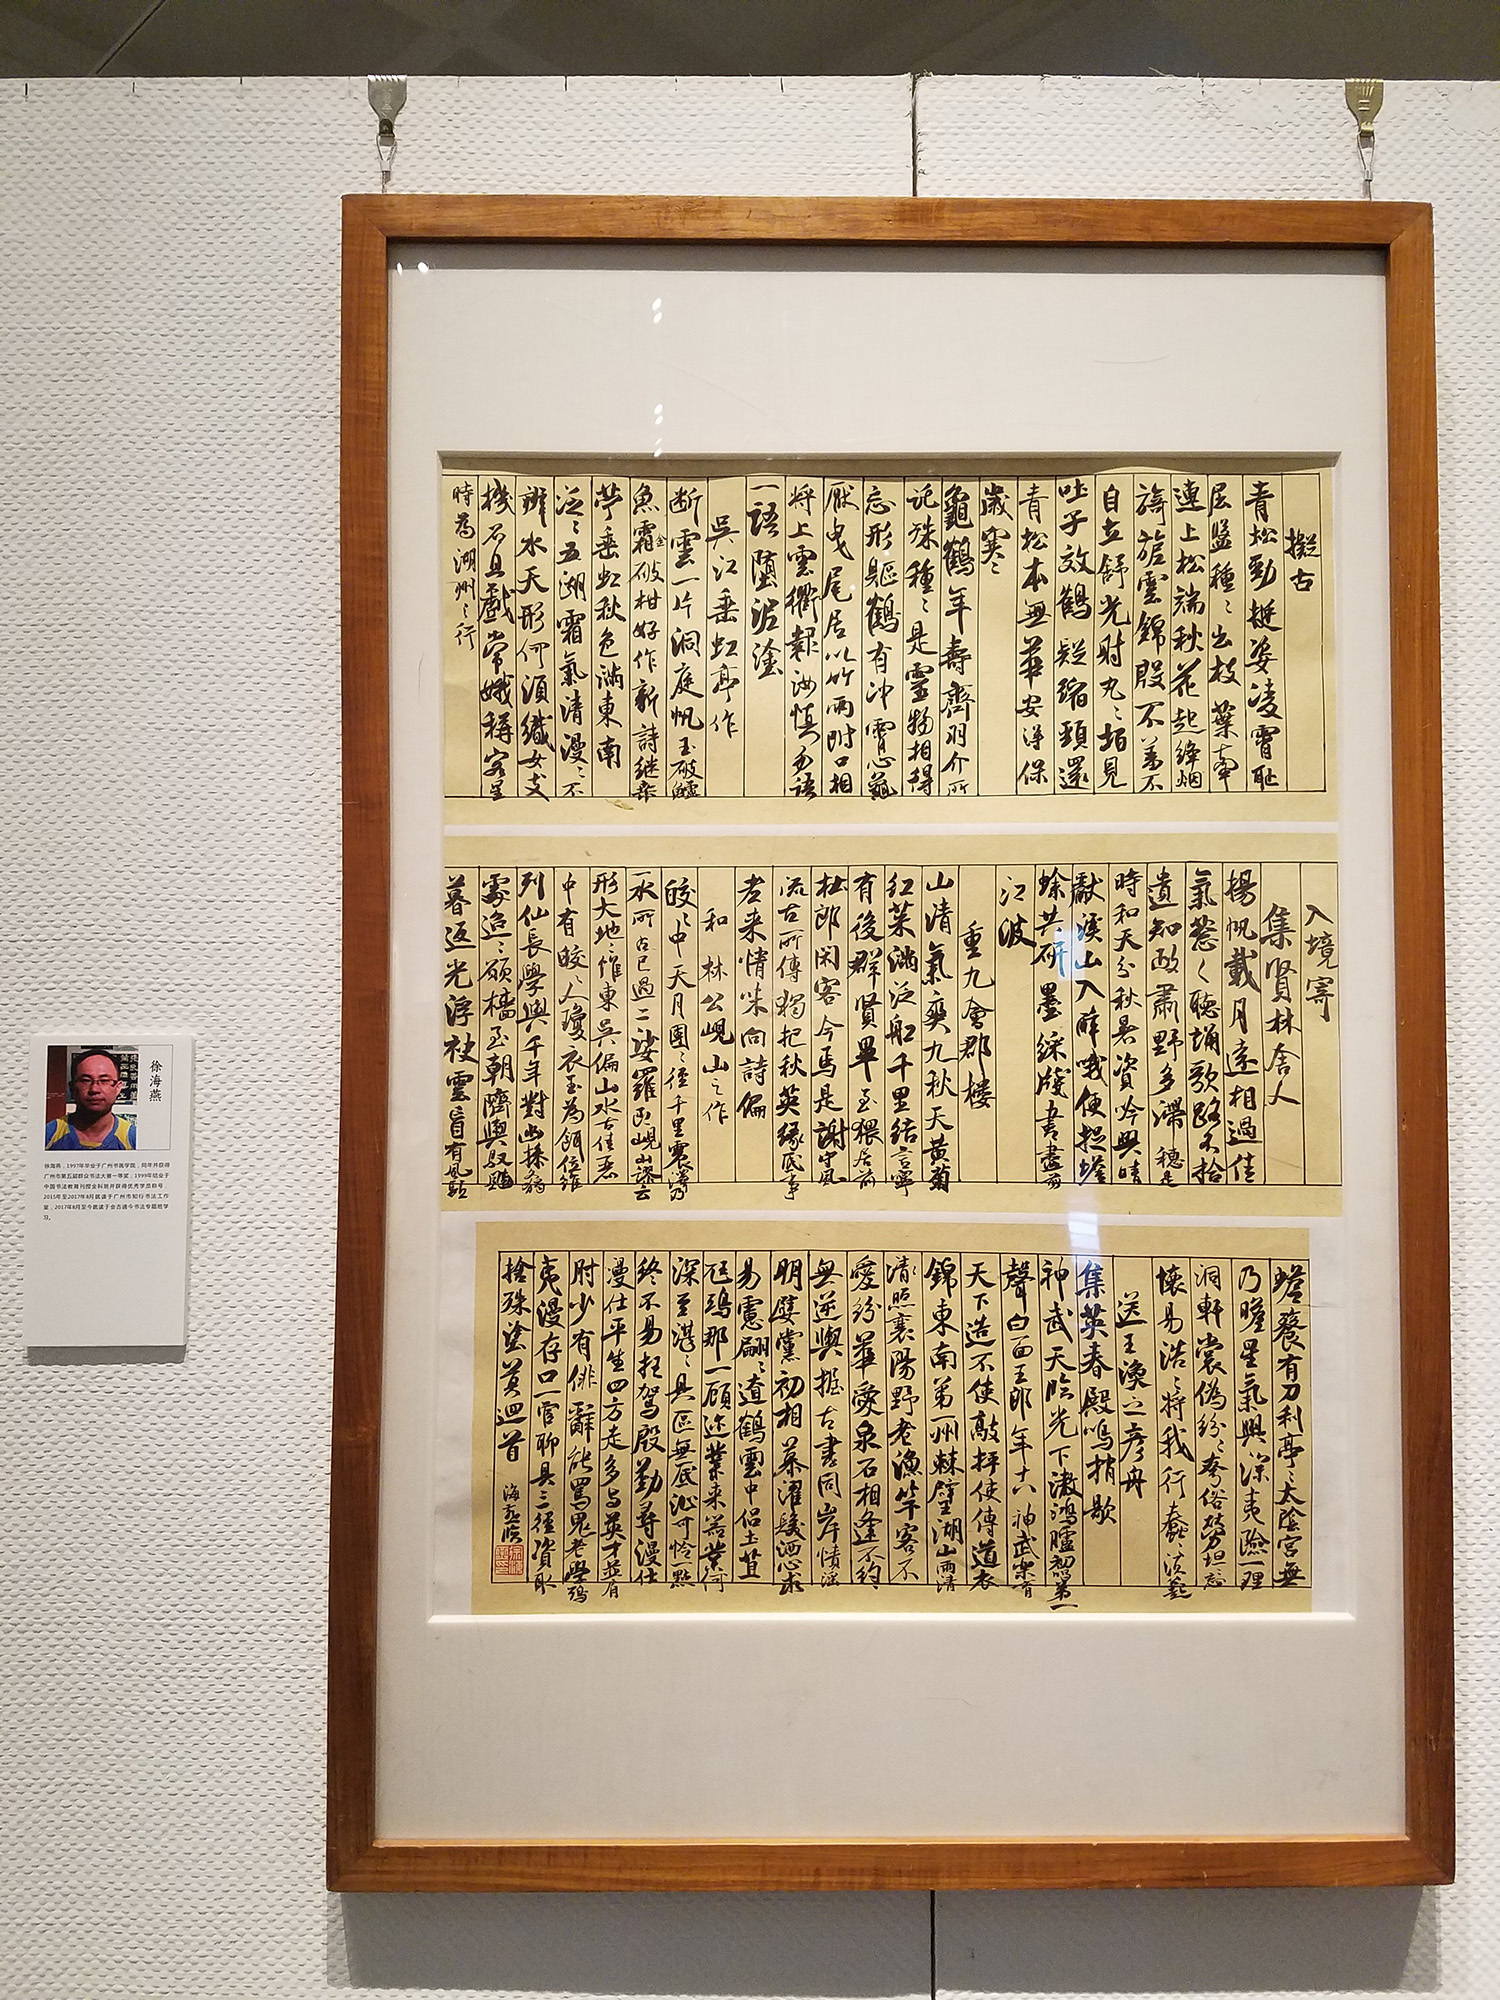 擬古
青松勁挺姿凌霄恥
屈盤種種出枝葉牽
連上松端秋花起絳烟
旖旎雲錦殷不羞不
自立舒光射丸丸栢見
吐子效鶴疑縮頸還
青松本無華安得保
歲寒
龜鶴年壽齊羽介所
託殊種種是靈物相得
忘形軀鶴有沖霄心龜
厭曳尾居以竹兩附口相
將上雲衢報汝慎勿語
一語墮泥塗
吳江垂虹亭作
断雲一片洞庭帆玉破鱸
魚霜金破柑好作新詩継桑
苧垂虹秋色満東南
泛泛五湖霜氣清漫漫不
辨水天形何須織女支
機石且戲常娥稱客星
時為湖州之行
入境寄
集賢林舍人
揚帆載月遠相過佳
氣蔥蔥聴誦歌路不拾
遺知政肅野多滯穗是
時和天分秋暑資吟興晴
獻溪山入醉哦便捉蟾
蜍共研墨綵牋書盡剪
江波
重九會郡樓
山清氣爽九秋天黃菊
紅茱満泛船千里結言寧
有後群賢畢至猥居前
杜郎閑客今焉是謝守風
流古所傳獨把秋英緣底事
老来情味向詩偏
和林公峴山之作
皎皎中天月團團徑千里震澤乃
一水所占已過二娑羅即峴山謬云
形大地惟東吳偏山水古佳麗
中有皎皎人瓊衣玉為餌位維
列仙長學與千年對幽操久獨
處迢迢願檣至朝隮與馭飈
暮返光浮袂雲盲有風駘
蟾餮有刀利亭亭太陰宮無
乃瞻星氣興深夷險一理
洞軒裳偽紛紛夸俗勞坦忘
懷易浩浩將我行蠢蠢須公起
送王渙之彥舟
集英春殿鳴梢歇
神武天臨光下澈鴻臚初唱第一
聲白面玉郎年十八神武樂育
天下造不使敲抨使傳道衣
錦東南第一州棘璧湖山兩清
照襄陽野老漁竿客不
愛紛華愛泉石相逢不約
無逆與握古書同岸幘淫
明嬖黨初相慕濯髮洒心求
易慮翩翩遼鶴雲中侶土苴
尫鴟那一顧邇業来器業何
深至湛湛具區無底沚可憐一點
終不易枉駕殷勤尋漫仕
漫仕平生四方走多与英才並肩
肘少有俳辭能罵鬼老學鴟
夷漫存口一官聊具三徑資取
捨殊塗莫迴首
海燕臨
徐海燕
徐海燕，1997年毕业于广州书画学院，同年并获得
广州市第五届群众书法大赛一等奖，1999年结业于
中国书法教育刊授全科班并获得优秀学员称号，
2015年至2017年8月就读于广州市知行书法工作
室，2017年8月至今就读于会古通今书法专题班学
习。